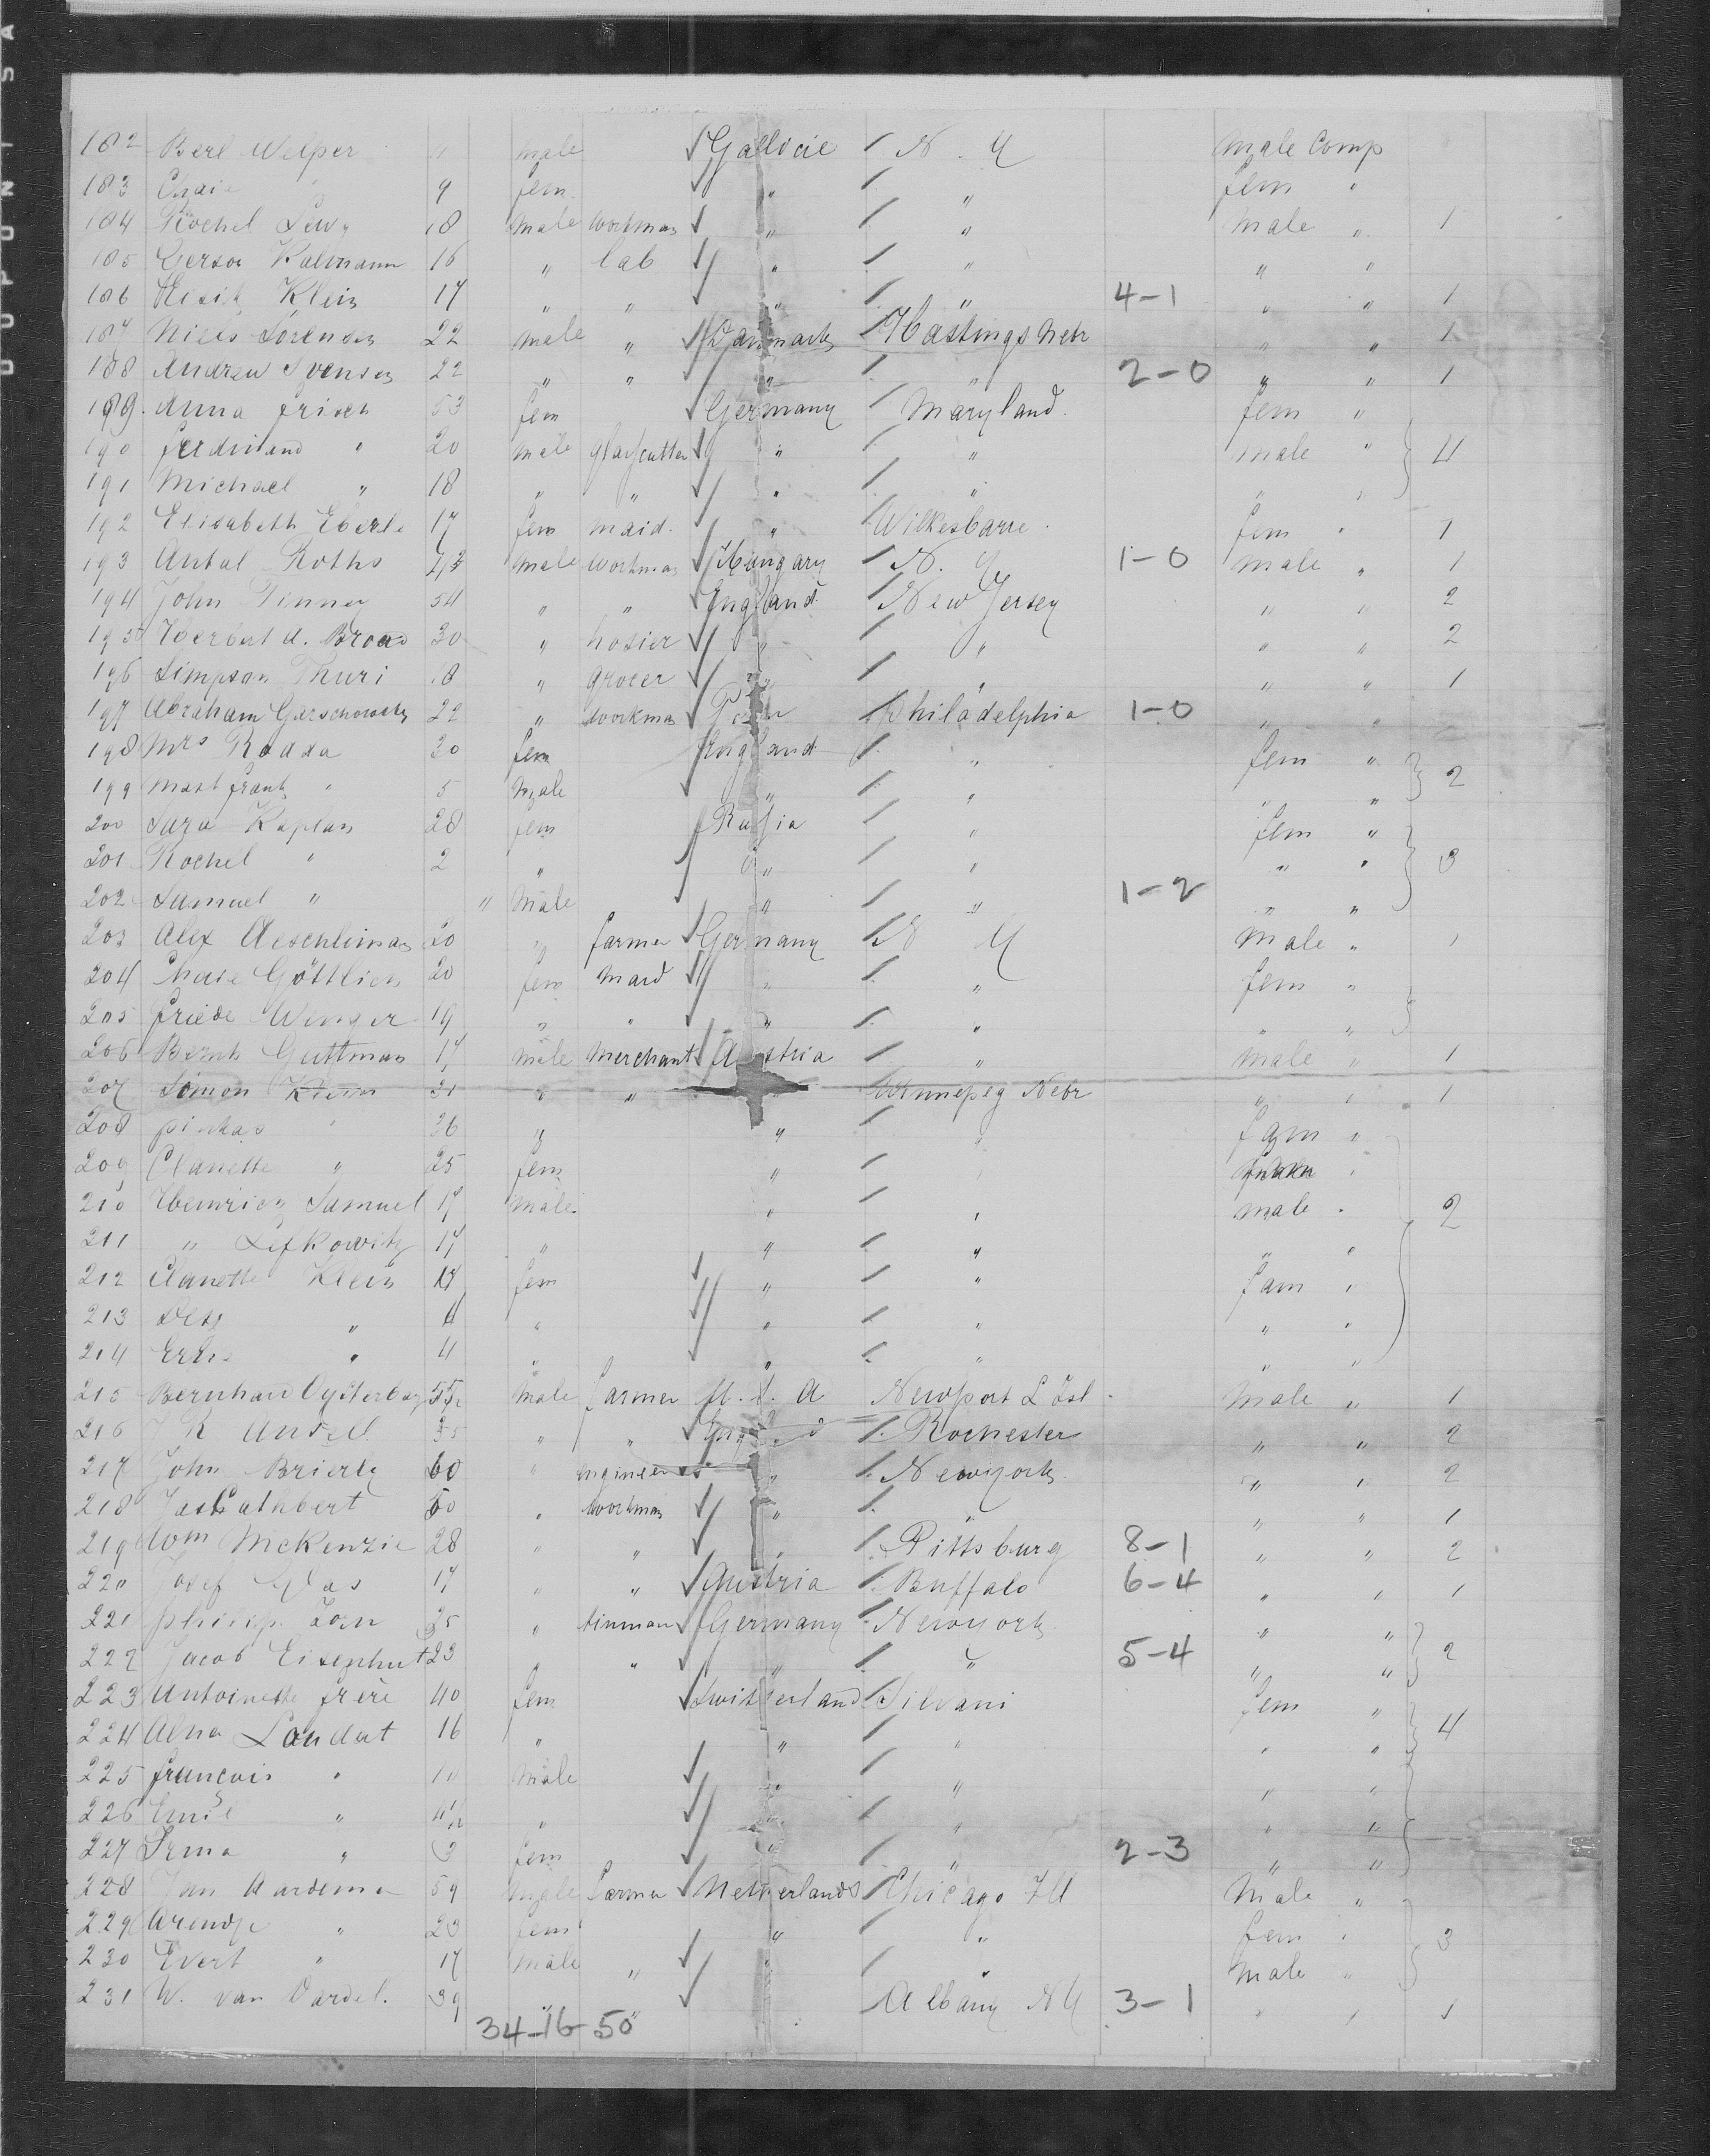 182 Berl Welper 11 male Gallicie N. Y male Comp
183 Chaie " 9 fem. " " fem "
184 Rochel Lewy 18 male workman " " male " 1
185 Gerson Kalmann 16 " lab " " " "
186 Eisik Klein 17 " " " " 4-1 " " 1
187 Niels Sörensen 22 male " Danmark Hastings Nebr " " 1
188 Andrew Svensen 22 " " " " 2-0 " " 1
189. Anna Frisch 53 fem Germany Maryland. fem "
190 Ferdinand " 20 male glascutter " " male " 4
191 Michael " 18 " " " " " "
192 Elisabeth Eberle 17 fem maid. " Wilkesbarre. fem " 1
193 Antal Roths male workman Hungary N. Y 1-0 male " 1
194 John Tenney 54 " " England New Jersey " " 2
195 Herbert A. 30 " hosier " " " " 2
196 Simpson Thuri 18 " grocer " " " " 1
197 Abraham Garschowsky 22 " workman Philadelphia 1-0 " "
198 Mrs Rodda 20 fem England " fem " 2
199 Mast Frank " 5 male " " " "
200 Sara Kaplan 28 fem Russia " fem " 3
201 Rochel " 2 " " " " "
202 Samuel " " male " " 1-2 " "
203 Alex Aeschliman 20 " farmer Germany N Y Male " 1
204 Chaie Göttlich 20 fem maid " " fem "
205 Friede Wenger 19 " " " " " "
206 Bernh Guttman 17 male merchant Austria " male " 1
207 Simon Klein 21 " " Winnepeg Nebr " " 1
208 pinkas " 26 " " " fam "
209 Clanette " 25 fem " " "
210 Heinrich Samuel 17 male. " " male " 2
211 " Lefkowitz 17 " " " " "
212 Clanette Klein 17 fem " " fam "
213 " " " " " "
214 " 4 " " " " "
215 Bernhard Oysterbay male farmer U. S. A Newport L Isl. male " 1
216 J R 35 " " England Rochester " " 2
217 John Brierly 60 " engineer " Newyork " " 2
218 Jas Cuthbert 50 " workman " " " " 1
219 Wm McKenzie 28 " " " Pittsburg 8-1 " " 2
220 Josef 17 " " Austria Buffalo 6-4 " " 1
221 philip Zorn 35 " tinman Germany Newyork " " 2
222 Jacob Eisenhut 23 " " " " 5-4 " "
223 Antoinette Frere 40 fem Switzerland Silvani fem " 4
224 Alna Landut 16 " " " " "
225 Francois " 10 male " " " "
226 Emil " " " " " "
227 Irma " 3 fem " " 2-3 " "
228 Jan Aardema 59 male farmer Netherlands Chicago Ill Male " 3
229 Arendje " 23 fem " " fem "
230 Evert " 17 male " " male "
231 W. van Dardel. 39 " " Albany NY 3-1 " " 1
34-16-50